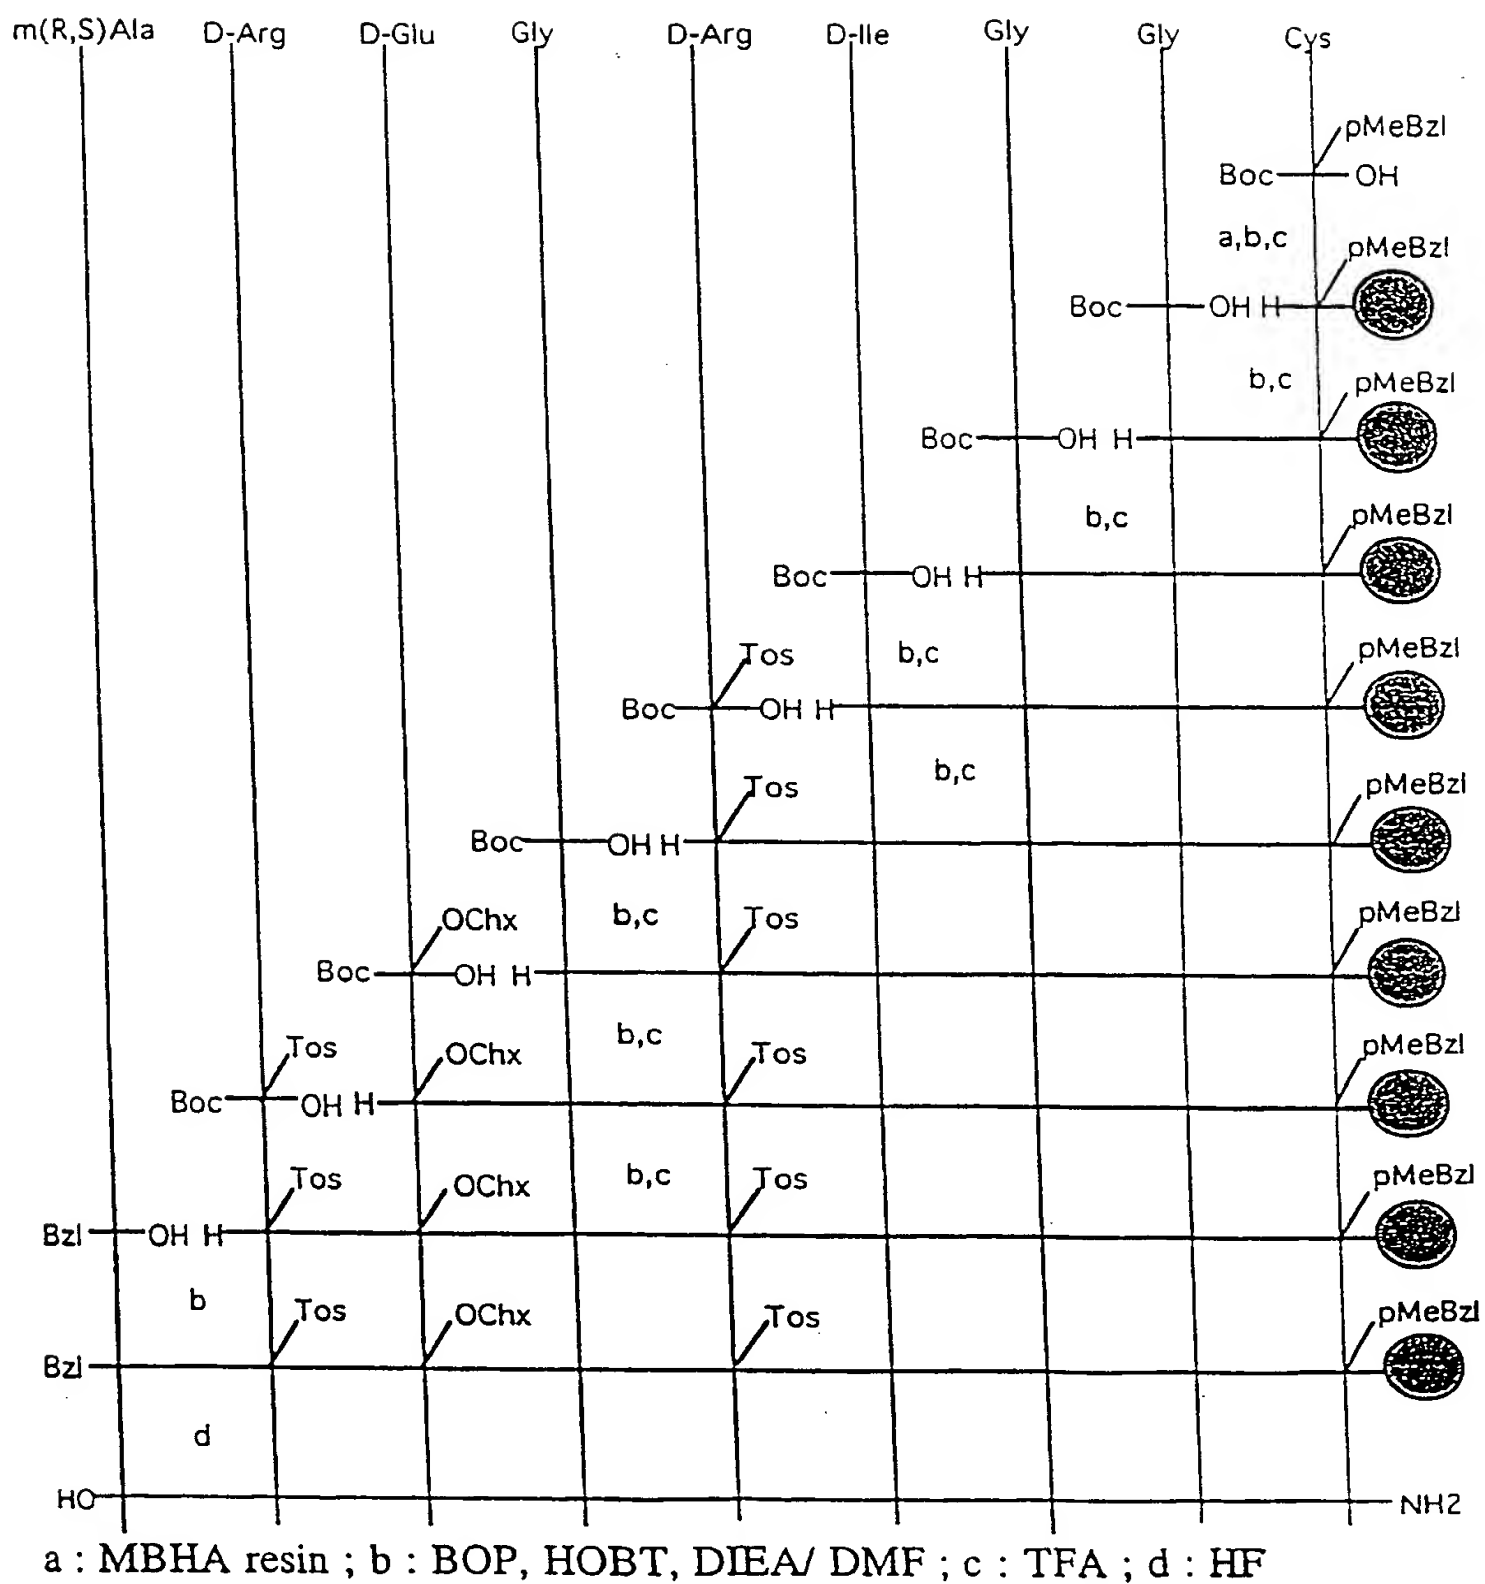 m(R,S)Ala D-Arg D-Glu Gly D-Arg D-Ile Gly Gly Cys
pMeBzl
Boc OH
a,b,c pMeBzl
Boc OH H
b,c pMeBzl
Boc OH H
b,c pMeBzl
Boc OH H
Tos b,c pMeBzl
Boc OH H
Tos b,c pMeBzl
Boc OH H
OChx b,c Tos pMeBzl
Boc OH H
Tos OChx b,c Tos pMeBzl
Boc OH H
Tos OChx b,c Tos pMeBzl
Bzl OH H
b Tos OChx Tos pMeBzl
Bzl
d
HO NH2
a : MBHA resin ; b : BOP, HOBT, DIEA/ DMF ; c : TFA ; d : HF